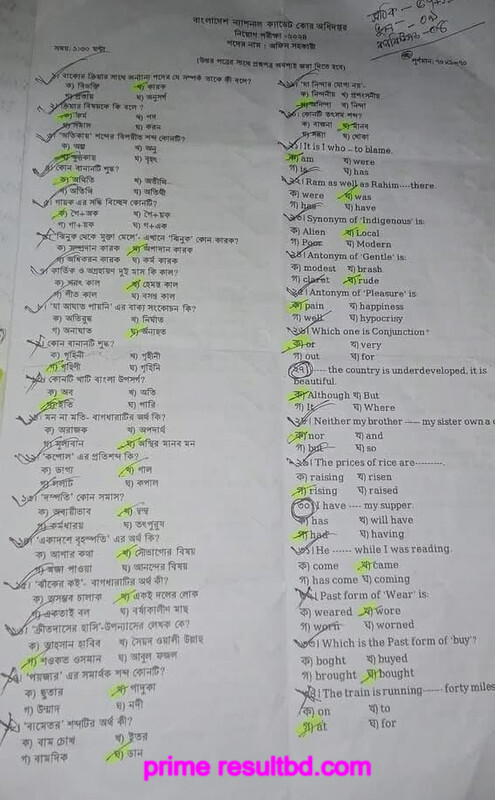 বাংলাদেশ ন্যাশনাল ক্যাডেট কোর অধিদপ্তর
নিয়োগ পরীক্ষা -২০২৪
পদের নাম : অফিস সহকারী
সময়: ১.৩০ ঘন্টা
পূর্ণমান: ৭০×১=৭০
(উত্তর পত্রের সাথে প্রশ্নপত্র অবশ্যই জমা দিতে হবে)
১। বাক্যের ক্রিয়ার সাথে অন্যান্য পদের যে সম্পর্ক তাকে কী বলে?
ক) বিভক্তি খ) কারক
গ) প্রত্যয় ঘ) অনুসর্গ
২। ক্রিয়ার বিষয়কে কি বলে ?
ক) কর্ম খ) পদ
গ) সমাস ঘ) করন
৩। 'অতিকায়' শব্দের বিপরীত শব্দ কোনটি?
ক) অল্প খ) অনু
গ) ক্ষুদ্রকায় ঘ) বৃহৎ
৪। কোন বানানটি শুদ্ধ?
৫। গায়ক এর সন্ধি বিচ্ছেদ কোনটি?
ক) গৈ+অক খ) গৈ+য়ক
গ) গা+য়ক ঘ) গ+এক
৬। 'ঝিনুক থেকে মুক্তা মেলে'- এখানে 'ঝিনুক' কোন কারক?
ক) সম্প্রদান কারক খ) অপাদান কারক
গ) অধিকরন কারক ঘ) কর্ম কারক
৭। কার্তিক ও অগ্রহায়ণ দুই মাস কি কাল?
ক) শরৎ কাল খ) হেমন্ত কাল
গ) শীত কাল ঘ) বসন্ত কাল
৮। 'যা আঘাত পায়নি' এর বাক্য সংকোচন কি?
গ) অনাঘাত ঘ) অনাহত
৯। কোন বানানটি শুদ্ধ?
ক) গৃহিনী খ) গৃহীনী
গ) গৃহিণী ঘ) গৃহিনি
১০। কোনটি খাটি বাংলা উপসর্গ?
ক) অব খ) অতি
গ) ইতি ঘ) পরি
১১। মন না মতি- বাগধারাটির অর্থ কি?
ক) অরাজক খ) অপদার্থ
গ) মূল্যবান ঘ) অস্থির মানব মন
১২। 'কপোল' এর প্রতিশব্দ কি?
ক) ভাগ্য খ) গাল
গ) ললাট ঘ) কপাল
১৩। 'দম্পতি' কোন সমাস?
ক) অব্যয়ীভাব খ) দ্বন্দ্ব
গ) কর্মধারয় ঘ) তৎপুরুষ
১৪। 'একাদশে বৃহস্পতি' এর অর্থ কি?
ক) আশার কথা খ) সৌভাগ্যের বিষয়
গ) মজা পাওয়া ঘ) আনন্দের বিষয়
১৫। 'ঝাঁকের কই'- বাগধারাটির অর্থ কী?
ক) অসম্ভব চালাক খ) একই দলের লোক
গ) একতাই বল ঘ) বর্ষাকালীন মাছ
১৬। 'ক্রীতদাসের হাসি'-উপন্যাসের লেখক কে?
ক) আহসান হাবিব খ) সৈয়দ ওয়ালী উল্লাহ
গ) শওকত ওসমান ঘ) আবুল ফজল
১৭। 'পয়জার' এর সমার্থক শব্দ কোনটি?
ক) ছুতার খ) পাদুকা
গ) উন্মাদ ঘ) নদী
১৮। 'বামেতর' শব্দটির অর্থ কী?
ক) বাম চোখ খ) ইতর
গ) বামদিক ঘ) ডান
১৯। 'যা নিন্দার যোগ্য নয়'-
ক) নিন্দনীয় খ) প্রশংসনীয়
গ) অনিন্দ্য ঘ) নিন্দা
২০। কোনটি তৎসম শব্দ?
ক) বাজনা খ) মানব
গ) সন্ধ্যা ঘ) খোকা
২১। It is I who – to blame.
ক) am খ) were
গ) is ঘ) has
২২। Ram as well as Rahim....there.
ক) were খ) was
গ) has ঘ) have
২৩। Synonym of 'Indigenous' is:
ক) Alien খ) Local
গ) Poor ঘ) Modern
২৪। Antonym of 'Gentle' is:
ক) modest খ) brash
গ) claret ঘ) rude
২৫। Antonym of 'Pleasure' is:
ক) pain খ) happiness
গ) well ঘ) hypocrisy
২৬। Which one is Conjunction?
ক) or খ) very
গ) out ঘ) for
২৭। .... the country is underdeveloped, it is
beautiful.
ক) Although খ) But
গ) It ঘ) Where
২৮। Neither my brother ---- my sister own a
ক) nor খ) and
গ) but ঘ) so
২৯। The prices of rice are---------.
ক) raising খ) risen
গ) rising ঘ) raised
৩০। I have ---- my supper.
ক) has খ) will have
গ) had ঘ) having
৩১। He ------ while I was reading.
ক) come খ) came
গ) has come ঘ) coming
৩২। Past form of 'Wear' is:
ক) weared খ) wore
গ) worn ঘ) worned
৩৩। Which is the Past form of 'buy'?
ক) boght খ) buyed
গ) brought ঘ) bought
৩৪। The train is running------ forty miles
ক) on খ) to
গ) at ঘ) for
prime resultbd.com